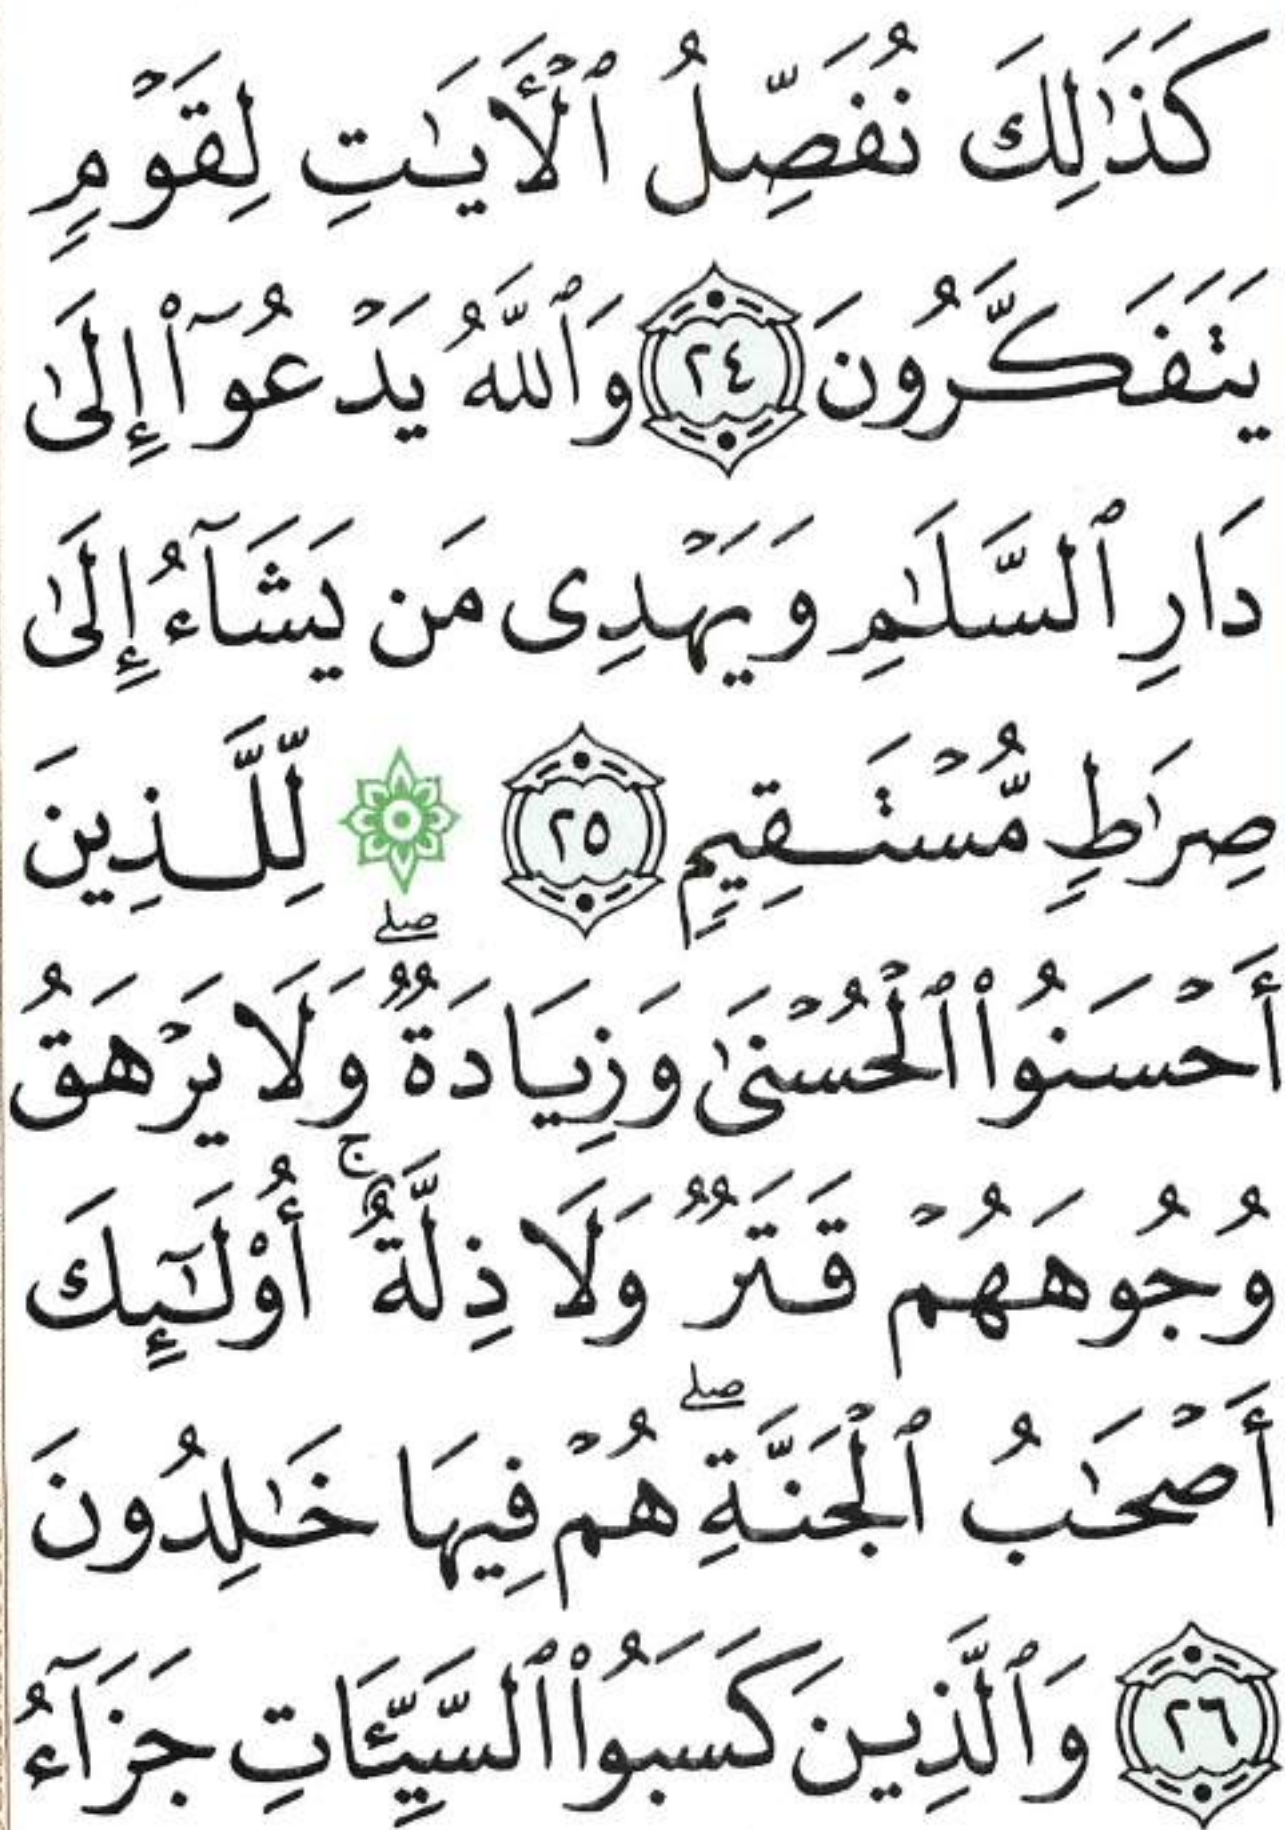 كَذَٰلِكَ نُفَصِّلُ ٱلْأَيَـٰتِ لِقَوْمٍ
يَتَفَكَّرُونَ ٢٤ وَٱللَّهُ يَدْعُوٓا۟ إِلَىٰ
دَارِ ٱلسَّلَـٰمِ وَيَهْدِى مَن يَشَآءُ إِلَىٰ
صِرَٰطٍ مُّسْتَقِيمٍ ٢٥ ۞ لِّلَّذِينَ
أَحْسَنُوا۟ ٱلْحُسْنَىٰ وَزِيَادَةٌ ۖ وَلَا يَرْهَقُ
وُجُوهَهُمْ قَتَرٌ وَلَا ذِلَّةٌ ۚ أُو۟لَـٰٓئِكَ
أَصْحَـٰبُ ٱلْجَنَّةِ ۖ هُمْ فِيهَا خَـٰلِدُونَ
٢٦ وَٱلَّذِينَ كَسَبُوا۟ ٱلسَّيِّـَٔاتِ جَزَآءُ